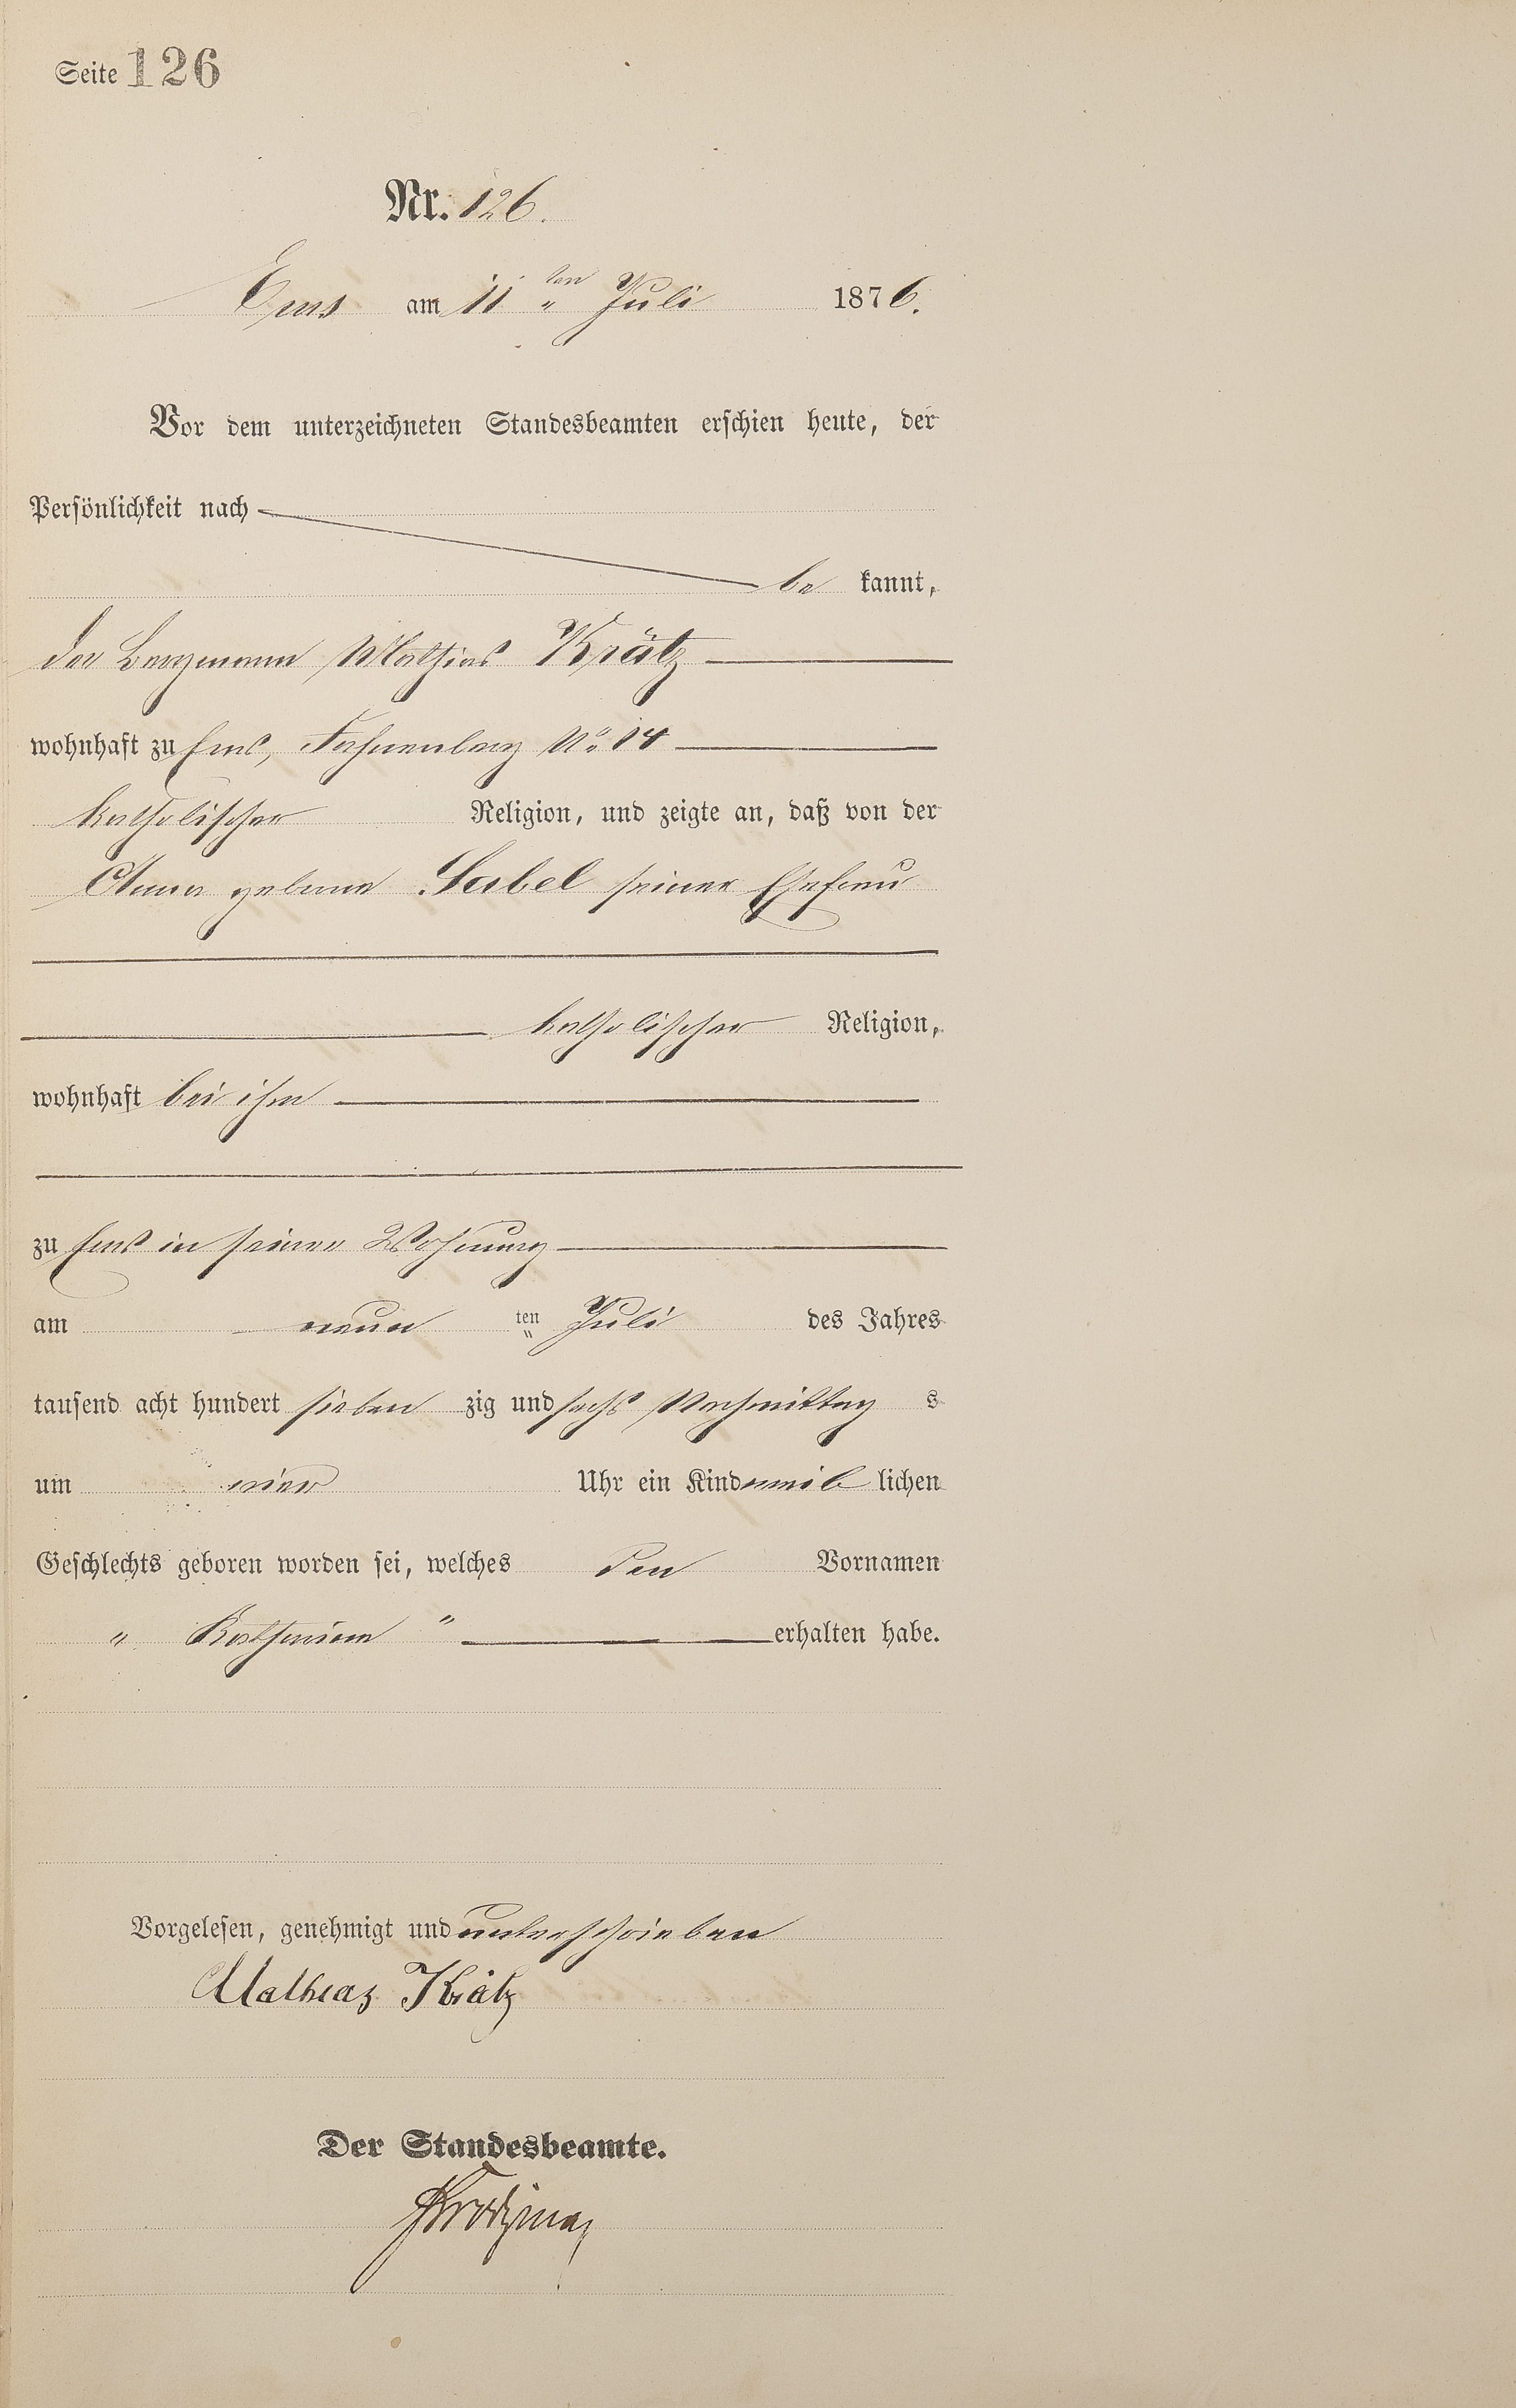 Seite 126
Nr. 126.
Ems am 11 ten Juli 1876.
Vor dem unterzeichneten Standesbeamten erschien heute, der
Persönlichkeit nach
be kannt,
der Bergmann Mathias Krätz
wohnhaft zu Ems, Fahnenberg No 14
katholischer Religion, und zeigte an, daß von der
Anna geborne Sabel seiner Ehefrau
katholischer Religion,
wohnhaft bei ihm
zu Ems in seiner Wohnung
am neun ten Juli des Jahres
tausend acht hundert sieben zig und sechs Nachmittag s
um vier Uhr ein Kind weib lichen
Geschlechts geboren worden sei, welches den Vornamen
" Katharina " erhalten habe.
Vorgelesen, genehmigt und unterschrieben
Mathias Krätz
Der Standesbeamte.